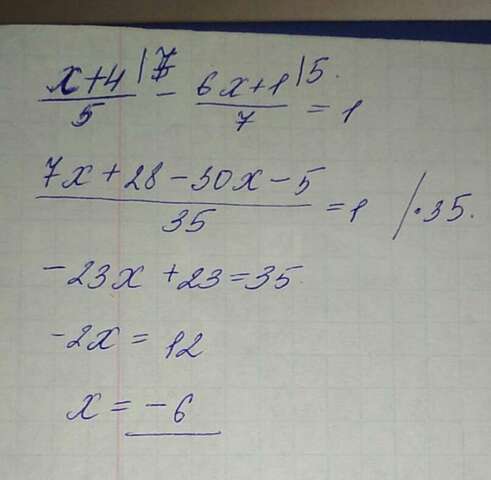 (x+4)/5 |7 - (6x+1)/7 |5. = 1
(7x+28-30x-5)/35 = 1 /·35.
-23x+23=35
-2x = 12
x = -6